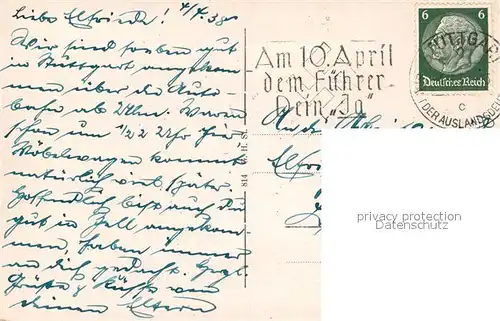 Liebe Elfriede! 4/4.38
Wir sind soeben gut
in Stuttgart angekom
men über die Auto-
bahn ab Ulm. Waren
schon um 1/2 2 Uhr hier
Möbelwagen kommt
natürlich viel später.
Hoffentlich bist auch Du
gut in Zell angekom
men, haben immer
an dich gedacht. Herzl.
Grüße & Küsse von
deinen Eltern
814 H. H. St.
Am 10. April
dem Führer
Dein „Ja"
6 6
Deutsches Reich
STUTTGA
DER AUSLANDSD
c
An
Elfrie
privacy protection
Datenschutz